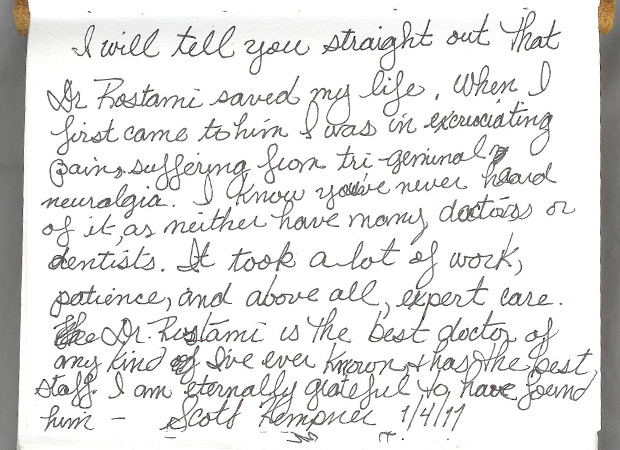 I will tell you straight out that
Dr Rostami saved my life. When I
first came to him I was in excruciating
pain, suffering from tri-geminal
neuralgia. I know you've never heard
of it, as neither have many doctors or
dentists. It took a lot of work,
patience, and above all, expert care.
Dr. Rostami is the best doctor of
any kind of I've ever known, + has the best
staff. I am eternally grateful to have found
him - Scott Kempner 1/4/11